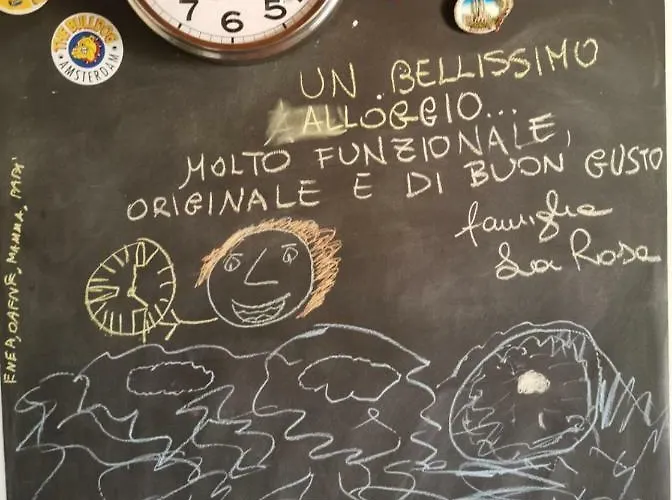 7 6 5
THE BULLDOG
AMSTERDAM
UN BELLISSIMO
ALLOGGIO...
MOLTO FUNZIONALE,
ORIGINALE E DI BUON GUSTO
famiglia
La Rosa
ENEA, DAFNE, MAMMA, PAPA'